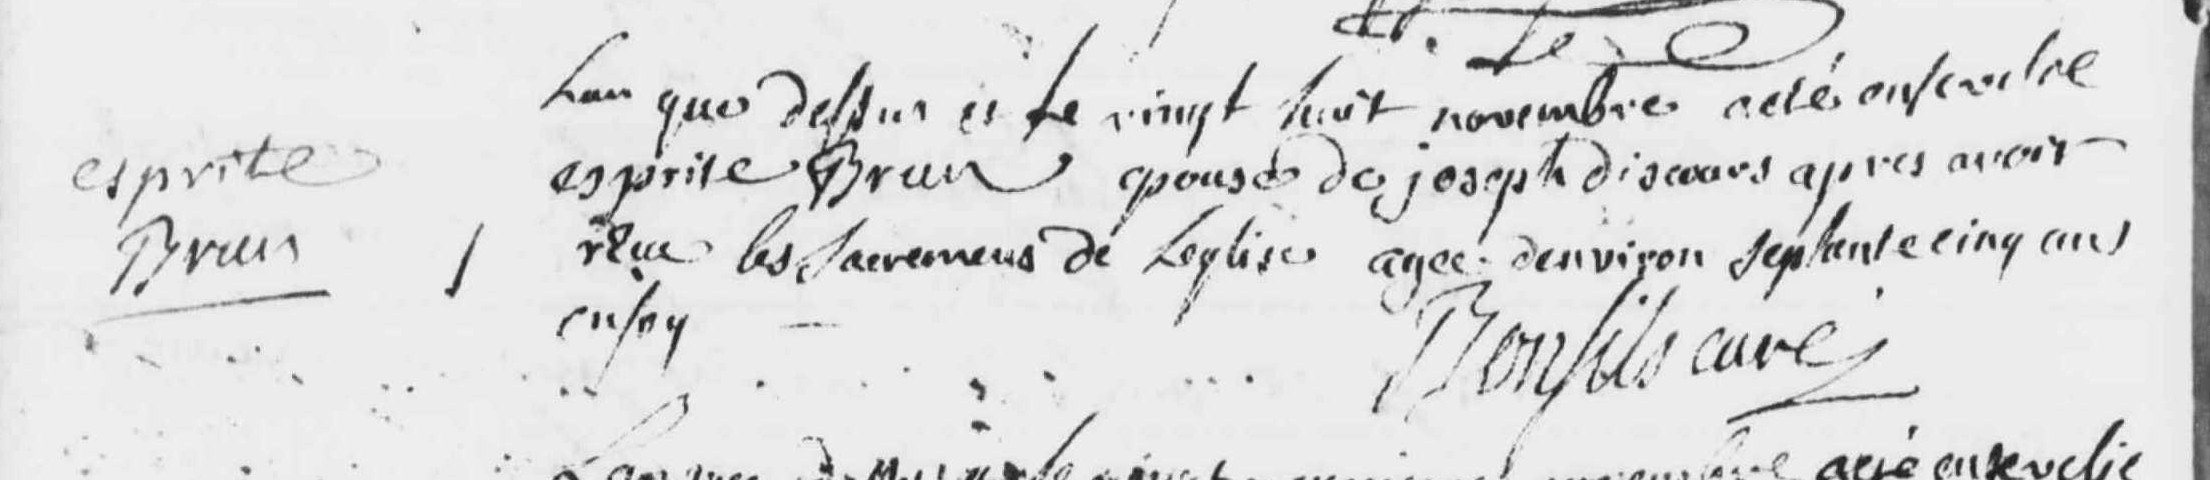 esprite
Brun
Lan que dessus et le vingt huit novembre a eté ensevelie
esprite Brun epouse de joseph discours apres avoir
recu les sacremens de Leglise agee denviron septante cinq ans
en foy
Bonfils curé
a eté ensevelie